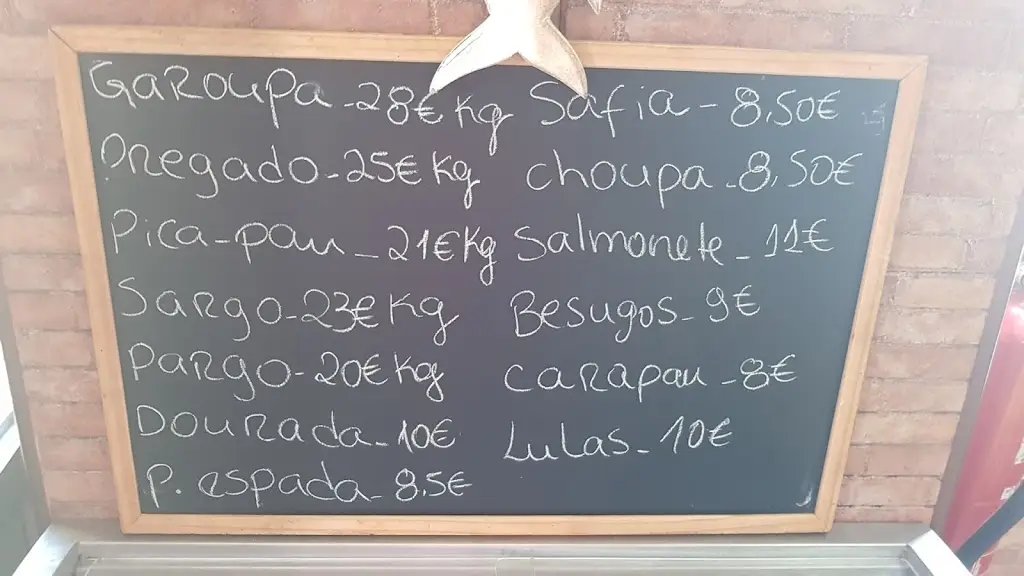 Garoupa - 28€ Kg
Oregado - 25€ Kg
Pica-pau - 21€ Kg
Sargo - 23€ Kg
Pargo - 20€ Kg
Dourada - 10€
P. espada - 8.5€
Safia - 8,50€
choupa - 8,50€
Salmonete - 11€
Besugos - 9€
carapau - 8€
Lulas - 10€